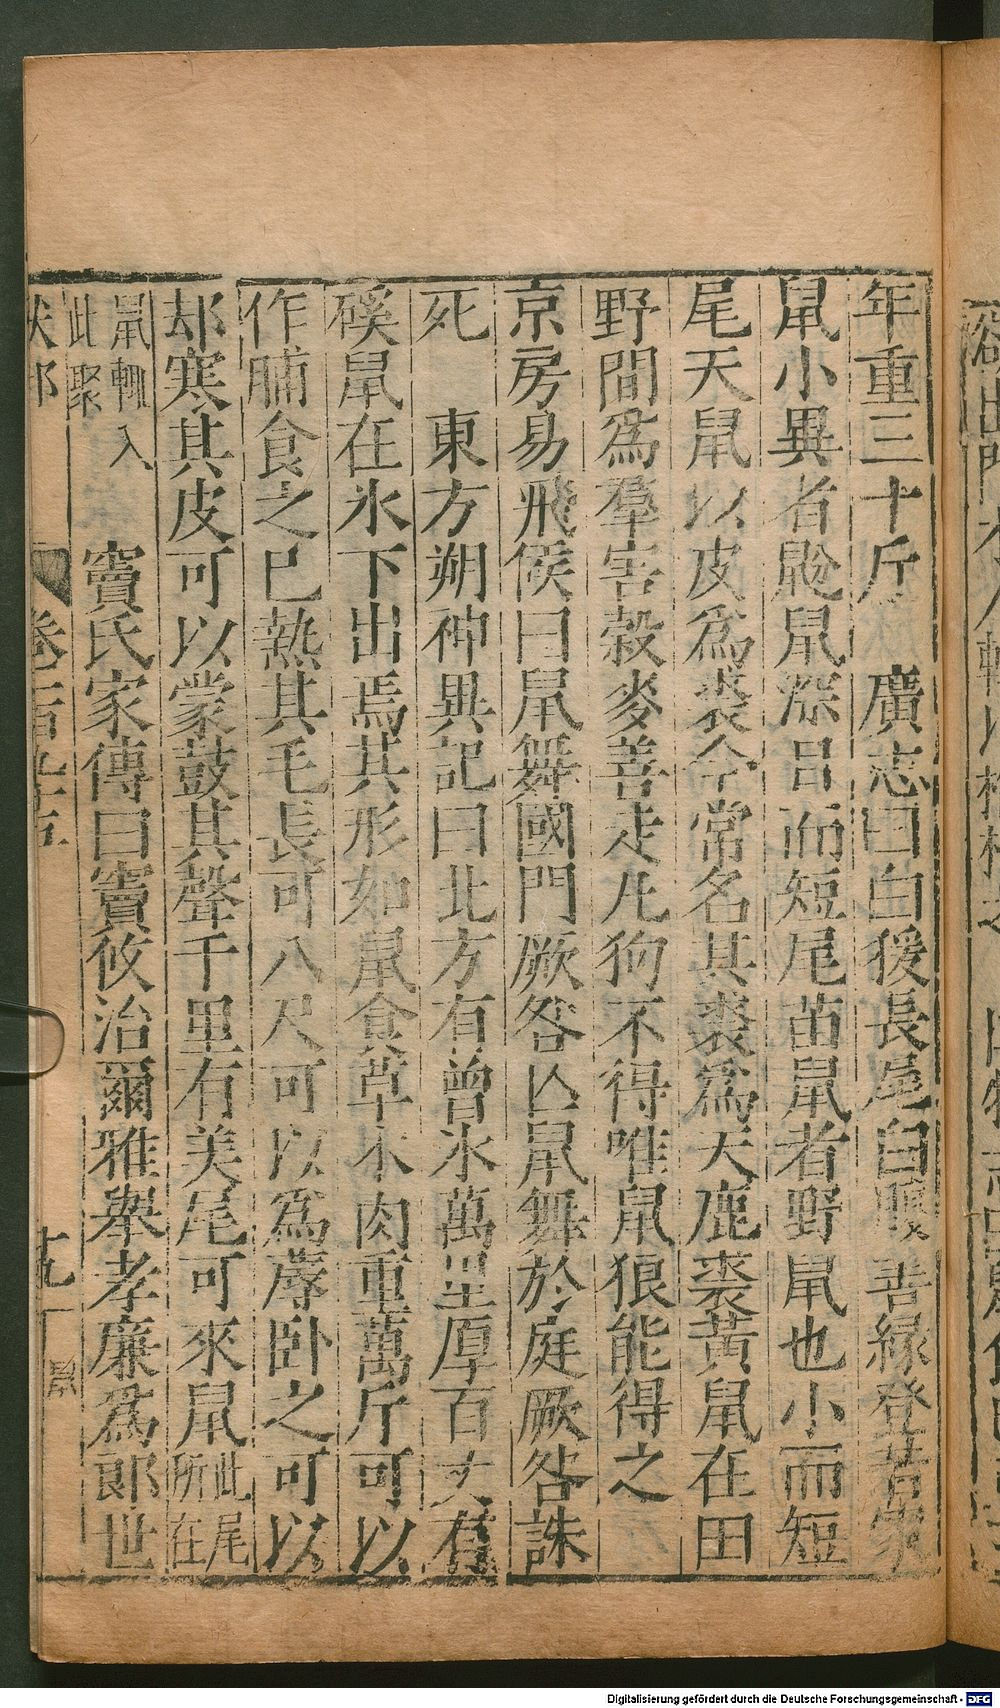 年重三十斤　廣志曰白猨長尾白腹善緣登若家
鼠小異者鼢鼠深目而短尾苗鼠者野鼠也小而短
尾天鼠以皮爲裘今常名其裘爲天鹿裘黃鼠在田
野間爲羣害穀麥善走凡狗不得唯鼠狼能得之
京房易飛候曰鼠舞國門厥咎亾鼠舞於庭厥咎誅
死　東方朔神異記曰北方有曾氷萬里厚百丈有
磎鼠在氷下出焉其形如鼠食草木肉重萬斤可以
作脯食之已熱其毛長可八尺可以爲蓐卧之可以
却寒其皮可以蒙鼓其聲千里有美尾可來鼠此尾所在
鼠輙入此聚　竇氏家傳曰竇攸治爾雅舉孝廉爲郎世
卷　九十五　十九
Digitalisierung gefördert durch die Deutsche Forschungsgemeinschaft - DFG